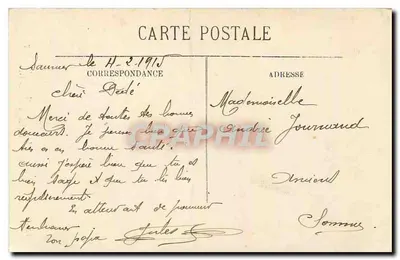 CARTE POSTALE
Saumur le 4-2-1915
CORRESPONDANCE
ADRESSE
chère Dédé
Merci de toutes tes bonnes
Je pense bien que
es en bonne santé
aussi j'espère bien que tu es
bien sage et que tu lis bien
En attendant de pouvoir
ton papa Jules
Mademoiselle
Andrée Journaud
Amiens
Somme